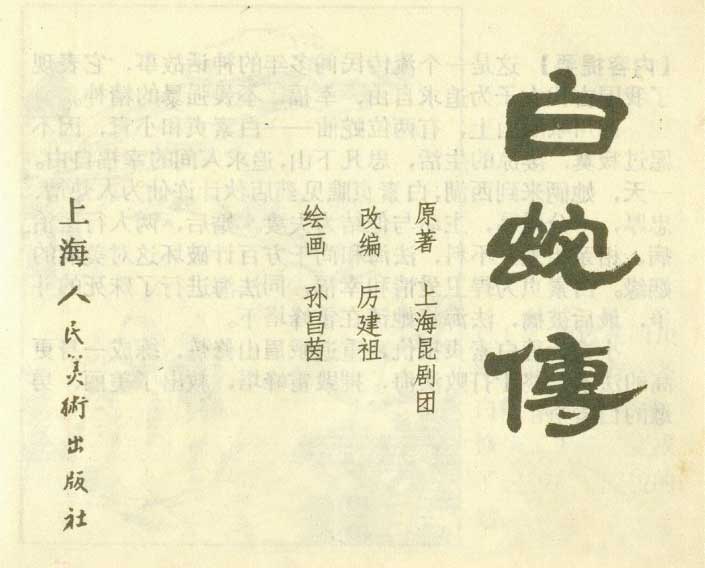 白蛇傳
原著 上海昆剧团
改编 厉建祖
绘画 孙昌茵
上海人民美術出版社